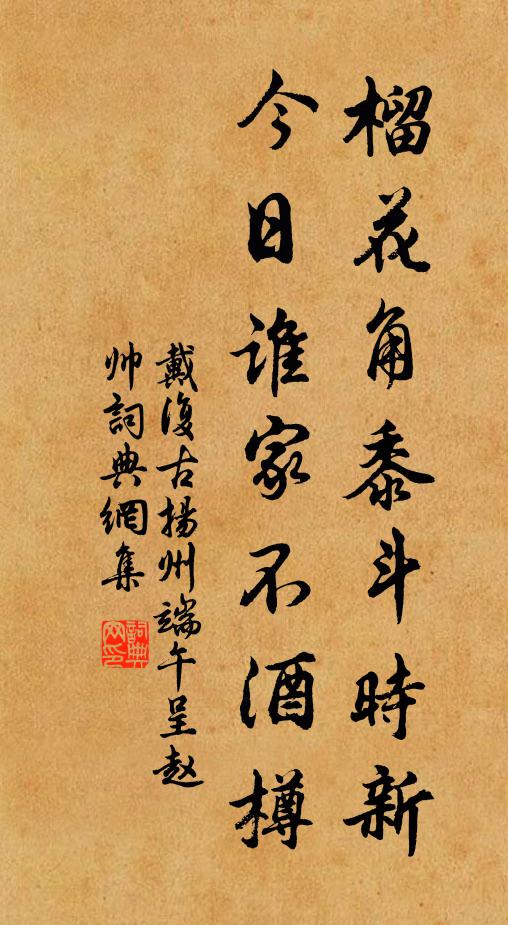 榴花角黍斗時新
今日誰家不酒樽
戴復古揚州端午呈赵
帅詞典網集
詞典网印